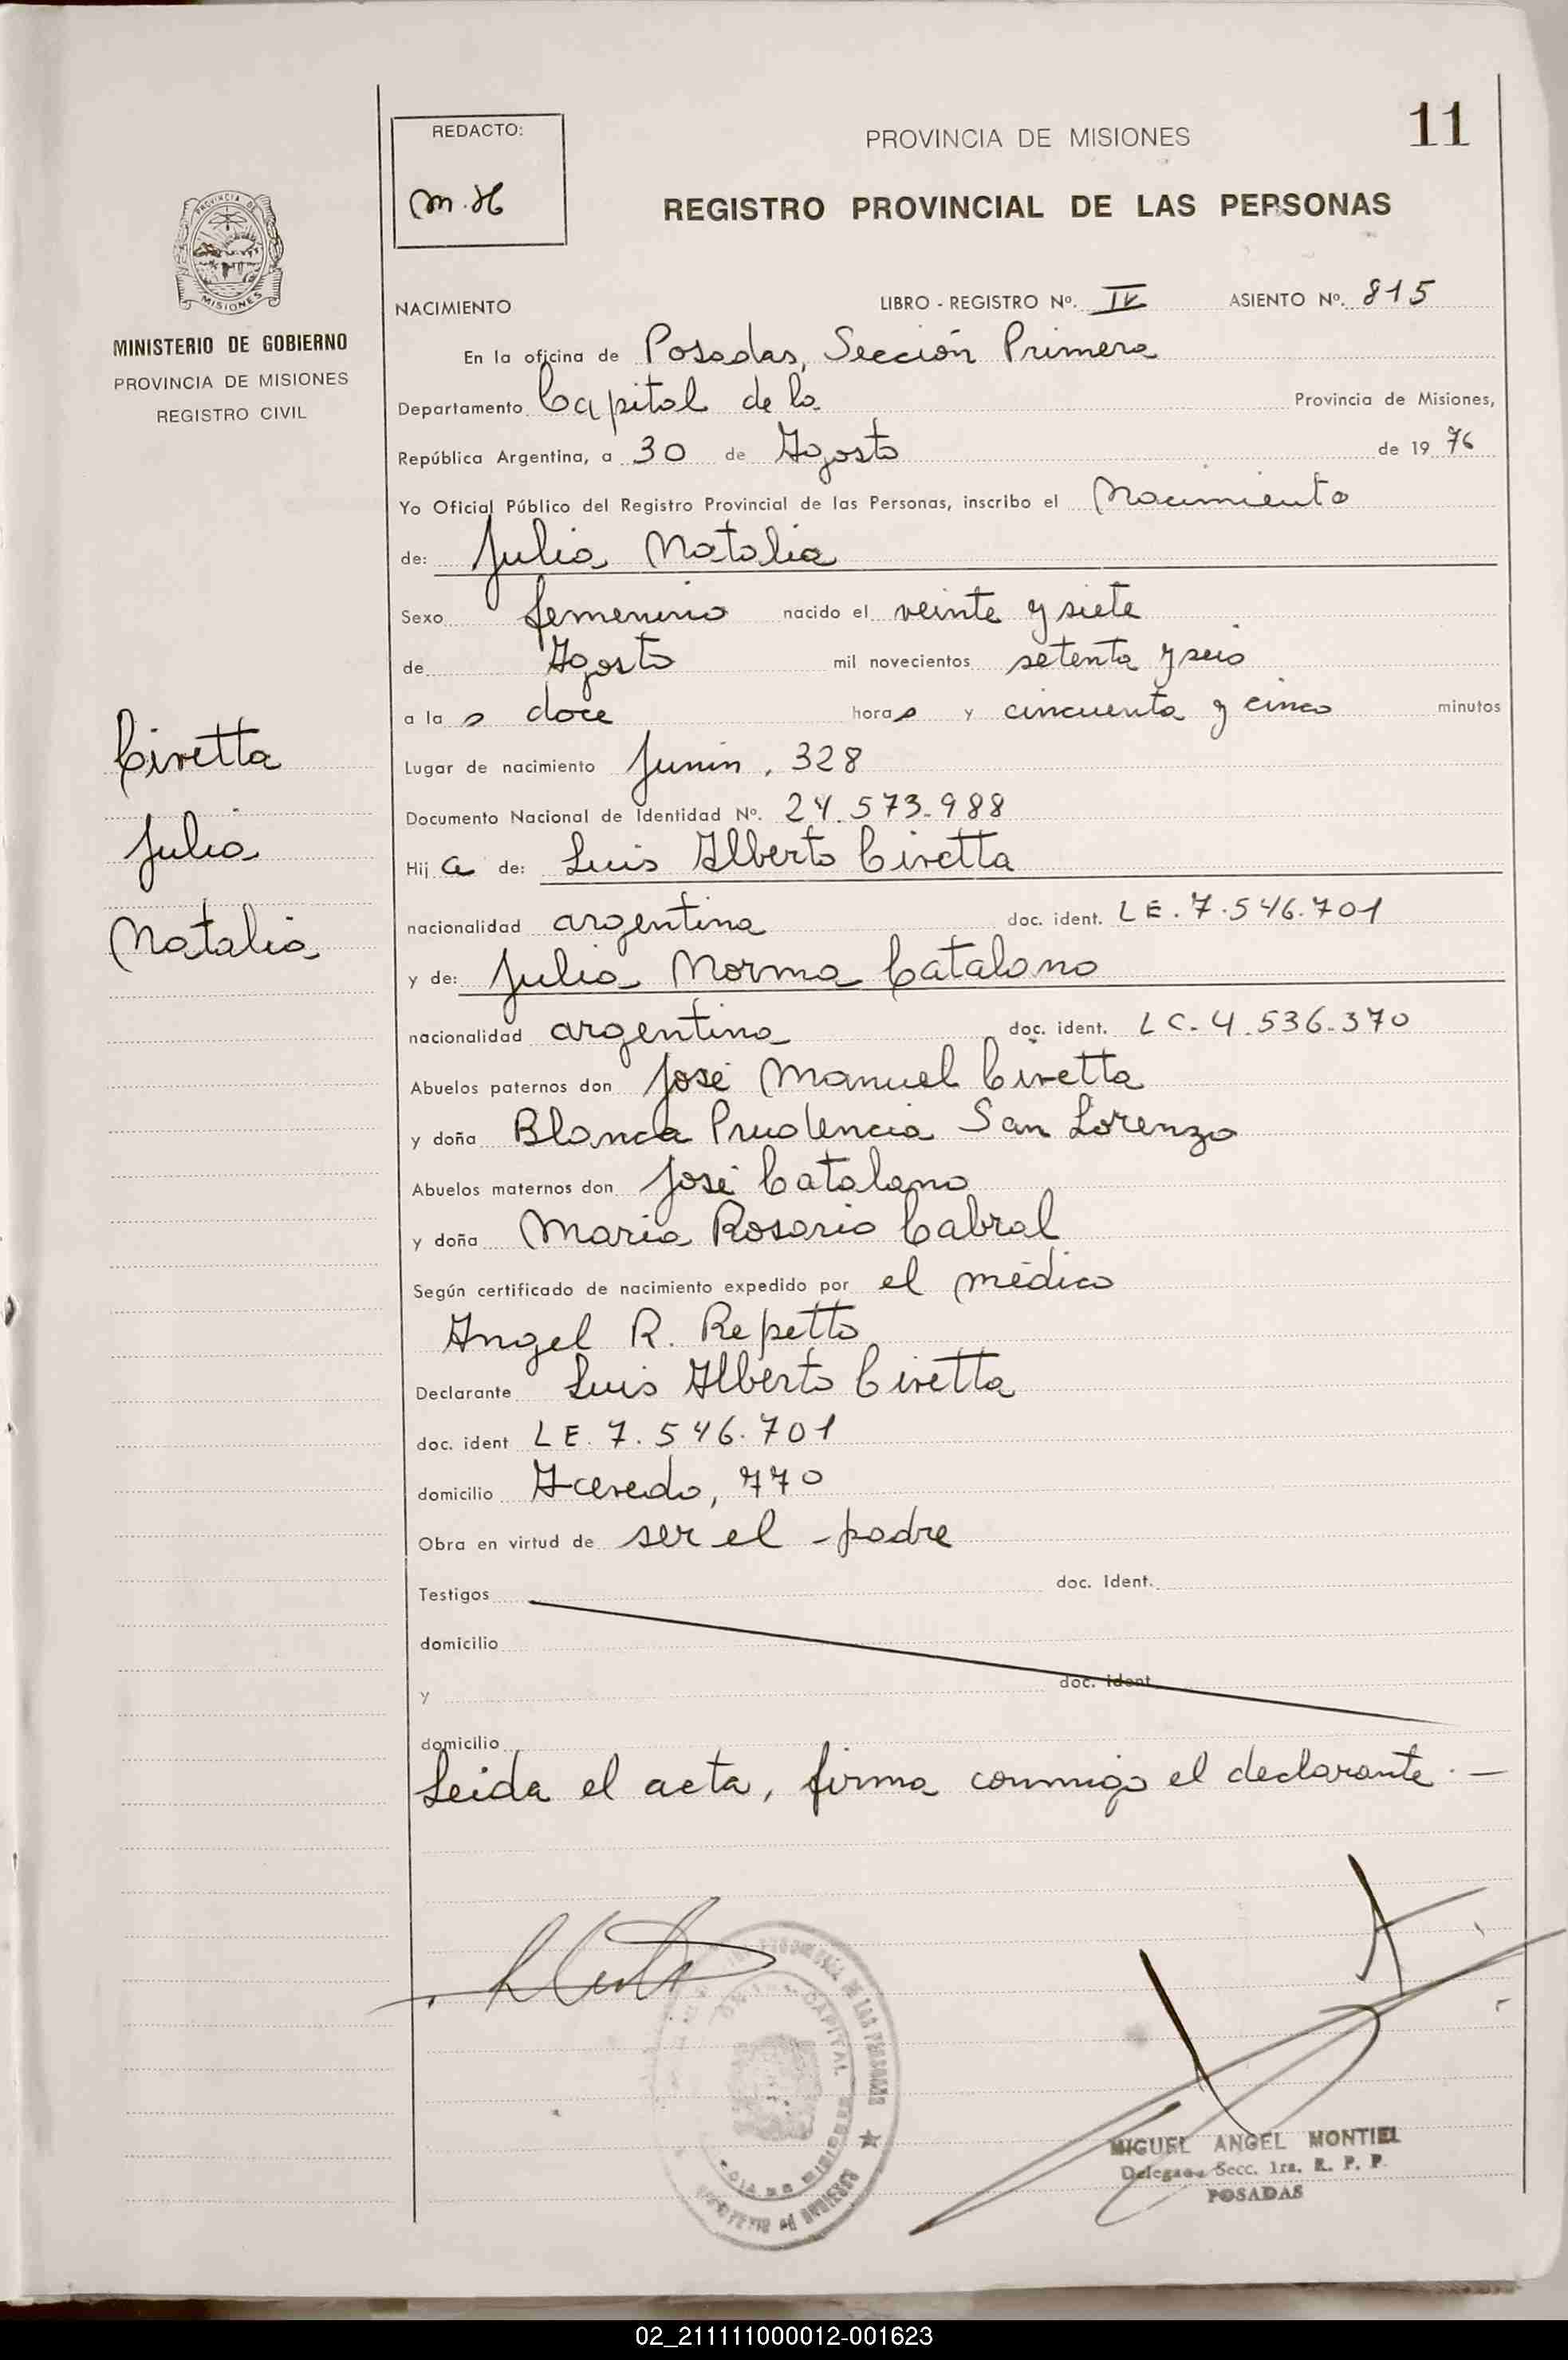 REDACTO:
m.H
PROVINCIA DE MISIONES
11
REGISTRO PROVINCIAL DE LAS PERSONAS
PROVINCIA DE
MISIONES
MINISTERIO DE GOBIERNO
PROVINCIA DE MISIONES
REGISTRO CIVIL
NACIMIENTO LIBRO - REGISTRO Nº. IV ASIENTO Nº. 815
En la oficina de Posadas, Sección Primera
Departamento Capital de la Provincia de Misiones,
República Argentina, a 30 de Agosto de 19 76
Yo Oficial Público del Registro Provincial de las Personas, inscribo el Nacimiento
de: Julia Natalia
Sexo femenino nacido el veinte y siete
de Agosto mil novecientos setenta y seis
a la s doce horas y cincuenta y cinco minutos
Lugar de nacimiento Junin, 328
Documento Nacional de Identidad Nº. 24.573.988
Hij a de: Luis Alberto Ciretta
nacionalidad argentina doc. ident. LE. 7.546.701
y de: Julia Norma Catalano
nacionalidad argentina doc. ident. LC. 4.536.370
Abuelos paternos don José Manuel Ciretta
y doña Blanca Prudencia San Lorenzo
Abuelos maternos don José Catalano
y doña Maria Rosario Cabral
Según certificado de nacimiento expedido por el médico
Angel R. Repetto
Declarante Luis Alberto Ciretta
doc. ident LE. 7.546.701
domicilio Acevedo, 770
Obra en virtud de ser el padre
Testigos doc. Ident.
domicilio
y doc. ident
domicilio
Leida el acta, firma conmigo el declarante.—
Ciretta
Julia
Natalia
CAPITAL
DE LAS PERSONAS
MIGUEL ANGEL MONTIEL
Delegado Secc. 1ra. R. P. P.
POSADAS
02_211111000012-001623